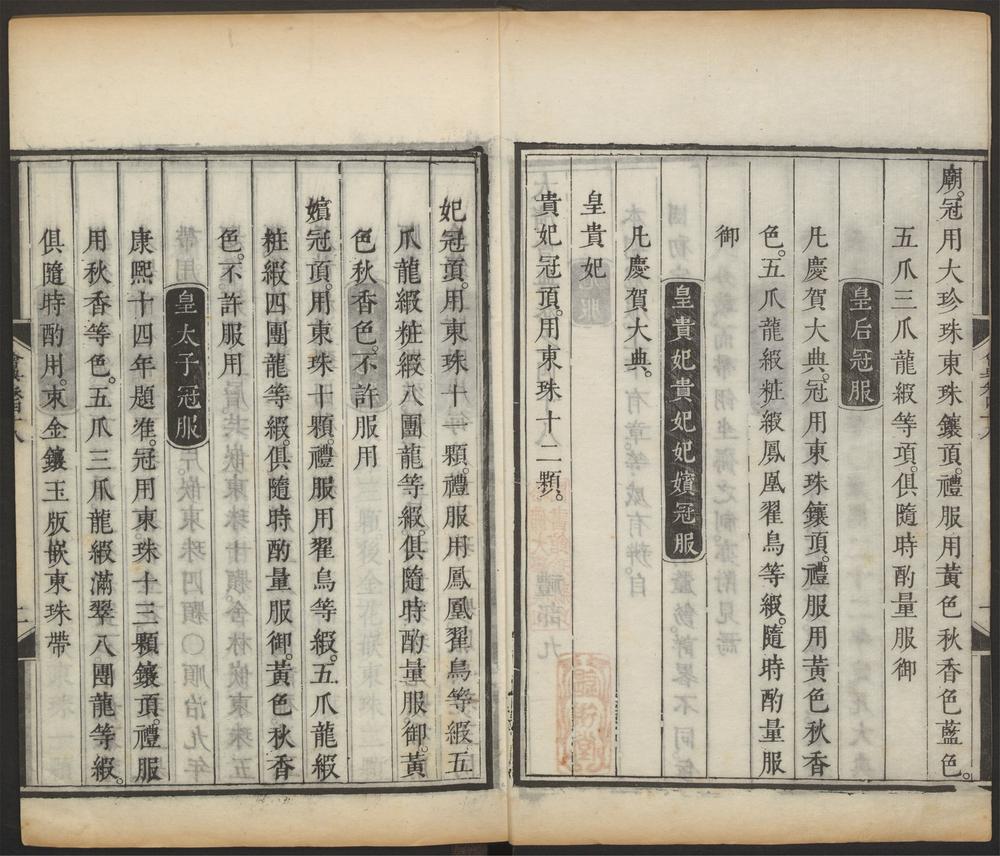 廟。冠用大珍珠東珠鑲頂。禮服用黃色秋香色藍色。
五爪三爪龍緞等項。俱隨時酌量服御
皇后冠服
凡慶賀大典。冠用東珠鑲頂。禮服用黃色秋香
色。五爪龍緞粧緞鳳凰翟鳥等緞。隨時酌量服
御
皇貴妃貴妃妃嬪冠服
凡慶賀大典。
皇貴妃
貴妃冠頂。用東珠十二顆。
妃冠頂。用東珠十一顆。禮服用鳳凰翟鳥等緞五
爪龍緞粧緞八團龍等緞。俱隨時酌量服御。黃
色秋香色。不許服用
嬪冠頂。用東珠十顆。禮服用翟鳥等緞。五爪龍緞
粧緞四團龍等緞。俱隨時酌量服御。黃色。秋香
色。不許服用
皇太子冠服
康熙十四年題准。冠用東珠十三顆鑲頂。禮服
用秋香等色。五爪三爪龍緞滿翠八團龍等緞。
俱隨時酌用。束金鑲玉版嵌東珠帶